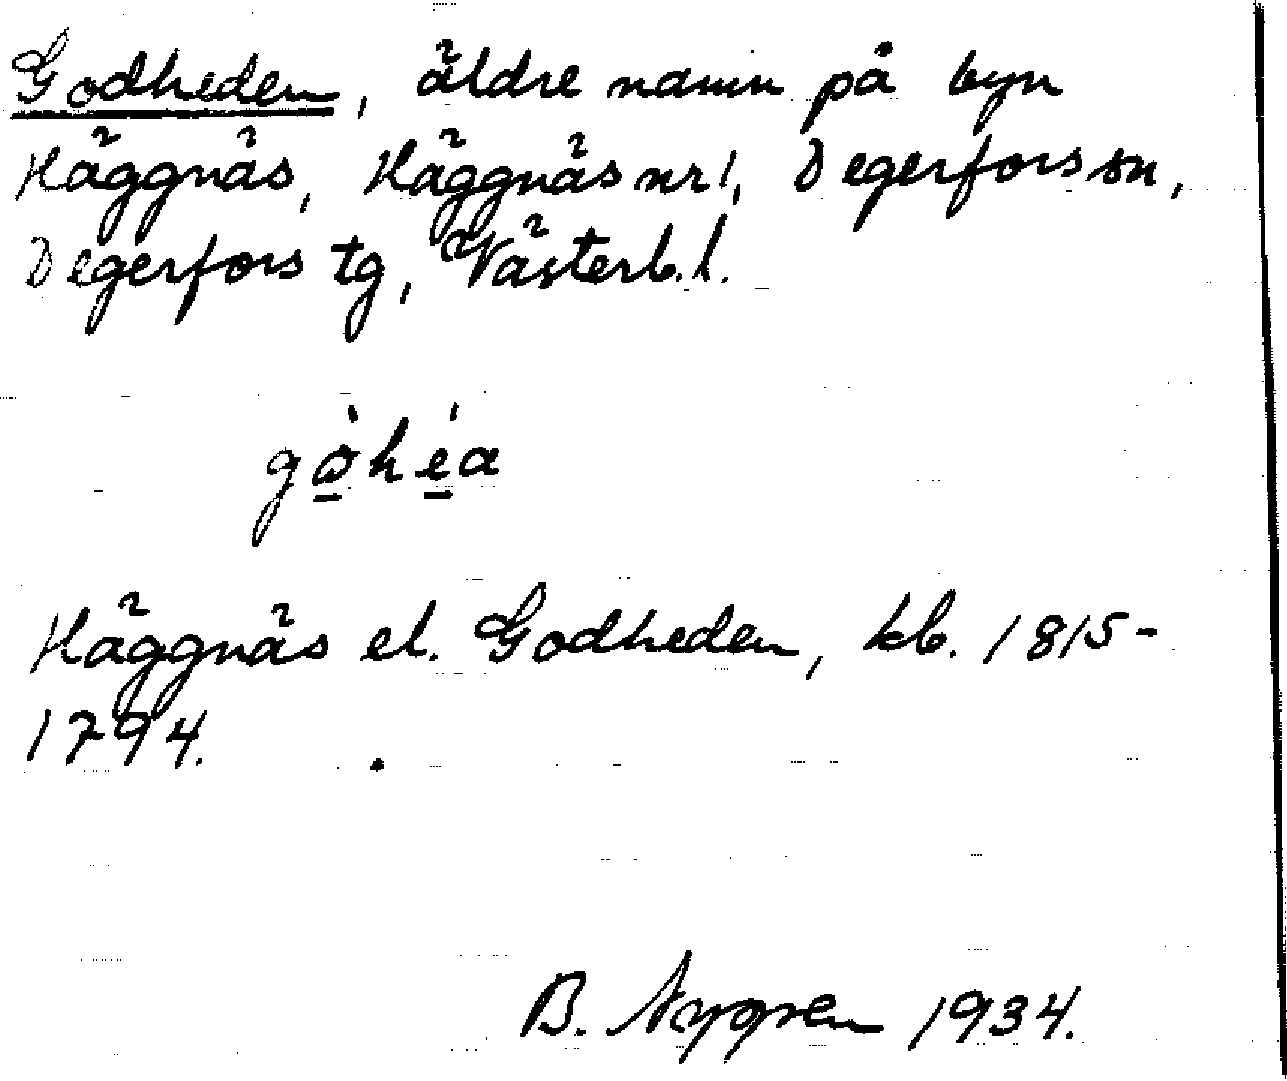 Godheden, äldre namn på byn
Häggnäs, Häggnäs nr 1, Degerfors sn,
Degerfors tg, Västerb. l.
gòhéa
Häggnäs el. Godheden, kb. 1815-
1794.
B. Nygren 1934.